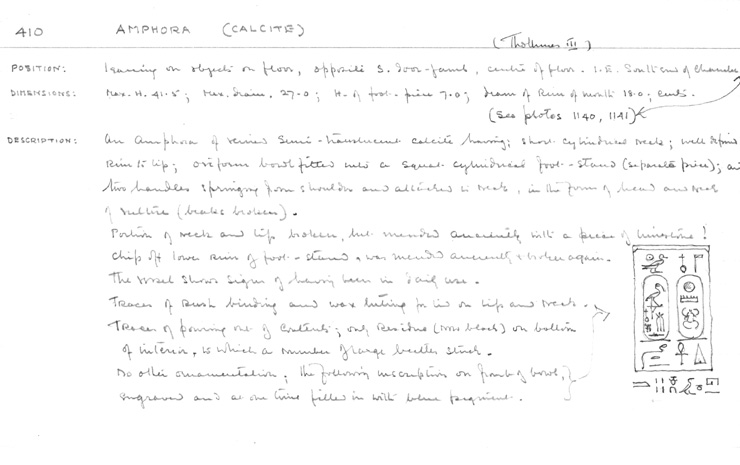 410 AMPHORA (CALCITE)
(Thothmes III)
POSITION: leaning on objects on floor, opposite S. door-jamb, centre of floor. I.E. South end of Chamber
DIMENSIONS: Max. H. 41.5; Max. diam. 27.0; H. of foot-piece 7.0; diam of Rim of mouth 18.0; cents.
(see photos 1140, 1141)
DESCRIPTION: An Amphora of veined semi-translucent calcite having; short cylindrical neck; well defined
Rim to lip; oviform bowl fitted into a squat cylindrical foot-stand (separate piece); and
two handles springing from shoulder and attached to neck, in the form of head and neck
of vulture (beaks broken).
Portion of neck and lip broken, but mended anciently with a piece of limestone!
Chip off lower rim of foot-stand & was mended anciently & broken again.
The vessel shows signs of having been in daily use.
Traces of Rush binding and wax luting for lid on lip and neck.
Traces of pouring out of contents; only Residue (now black) on bottom
of interior, to which a number of large beetles stuck.
No other ornamentation; the following inscription on front of bowl,
engraved and at one time filled in with blue pigment.